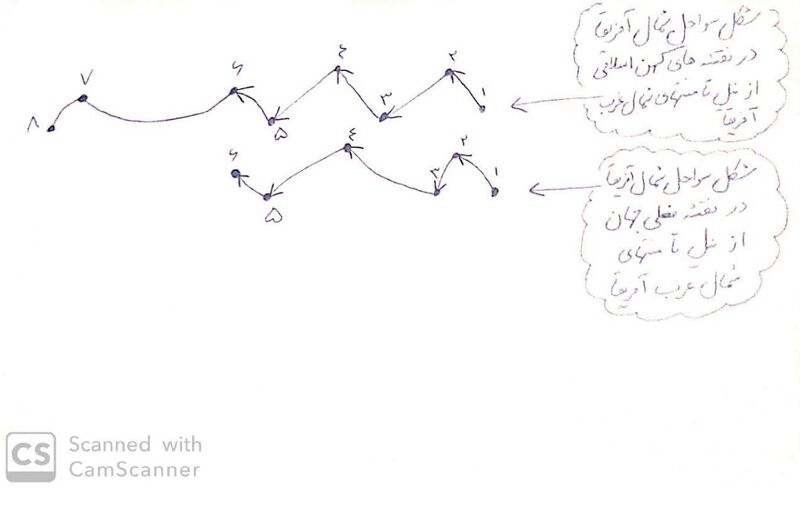 شکل سواحل شمال آفریقا
در نقشه های کهن اسلامی
از نیل تا منتهای شمال غرب
آفریقا
۱
۲
۳
٤
۵
۶
۷
۸
شکل سواحل شمال آفریقا
در نقشه فعلی جهان
از نیل تا منتهای
شمال غرب آفریقا
۱
۲
۳
٤
۵
۶
CS Scanned with
CamScanner